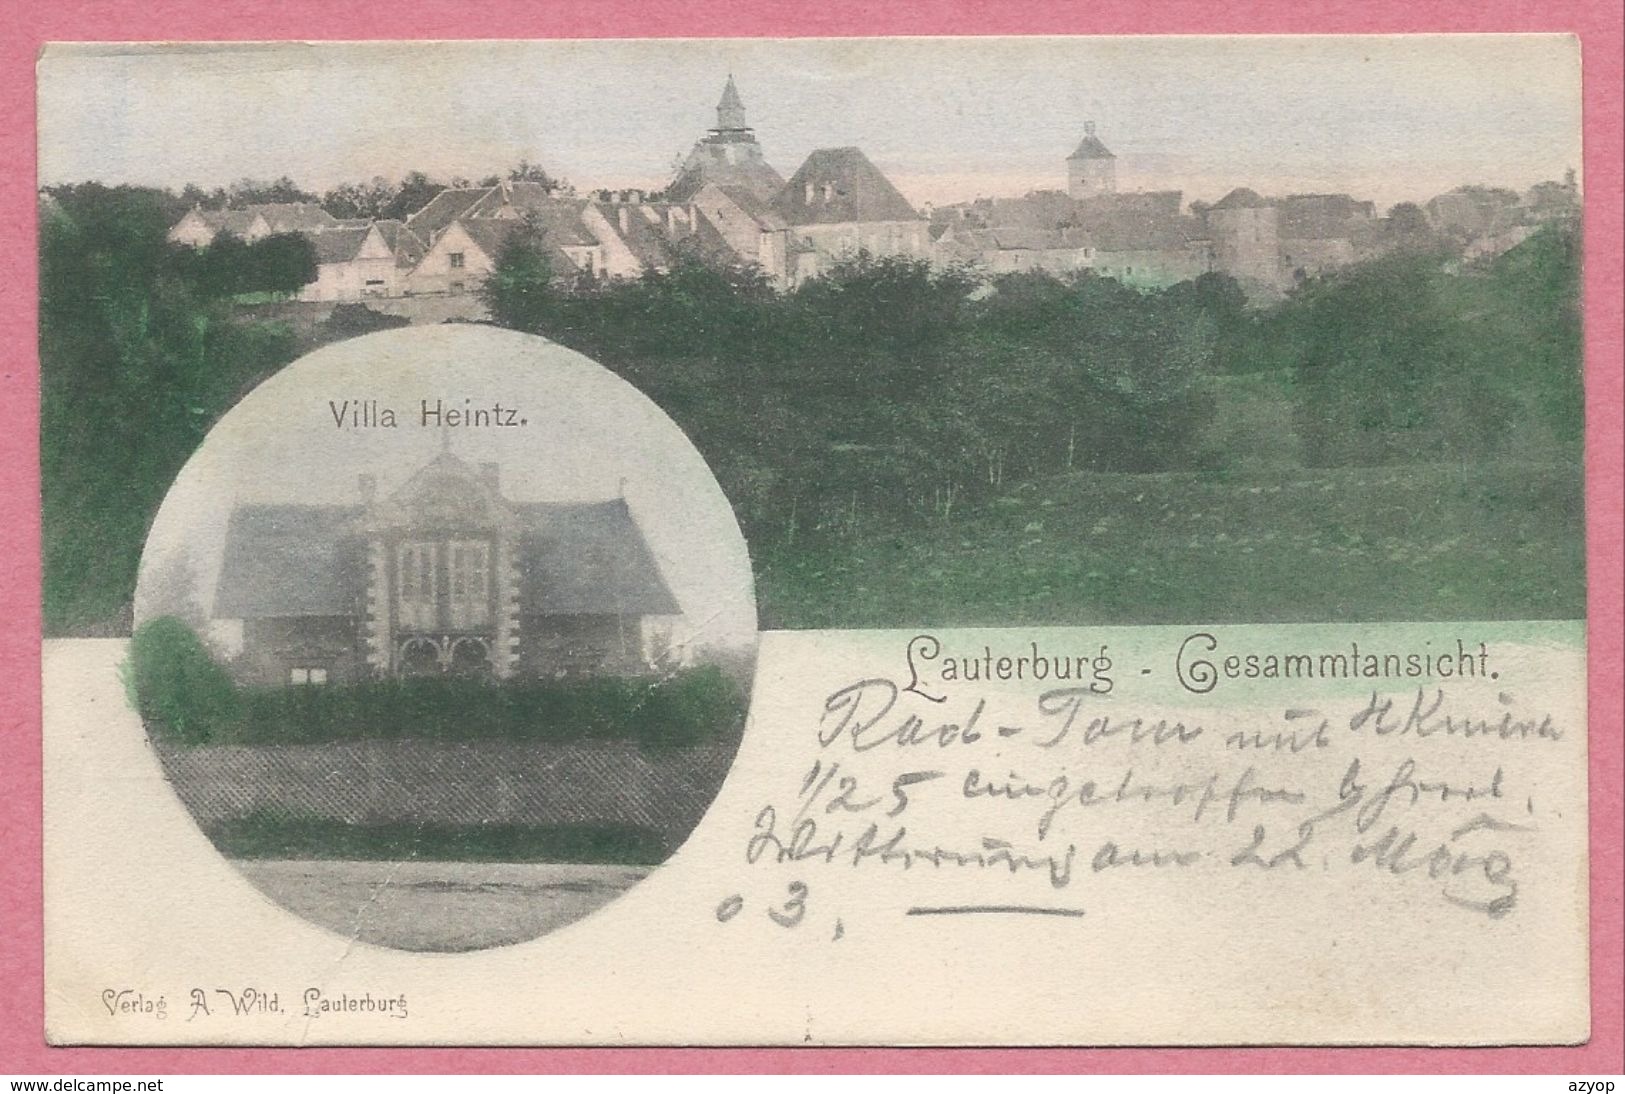 Villa Heintz.
Lauterburg - Gesammtansicht.
Rad-Tour mit H
1/25 eingetroffen
Witterung am 22. März
03.
Verlag A. Wild, Lauterburg
www.delcampe.net
azyop